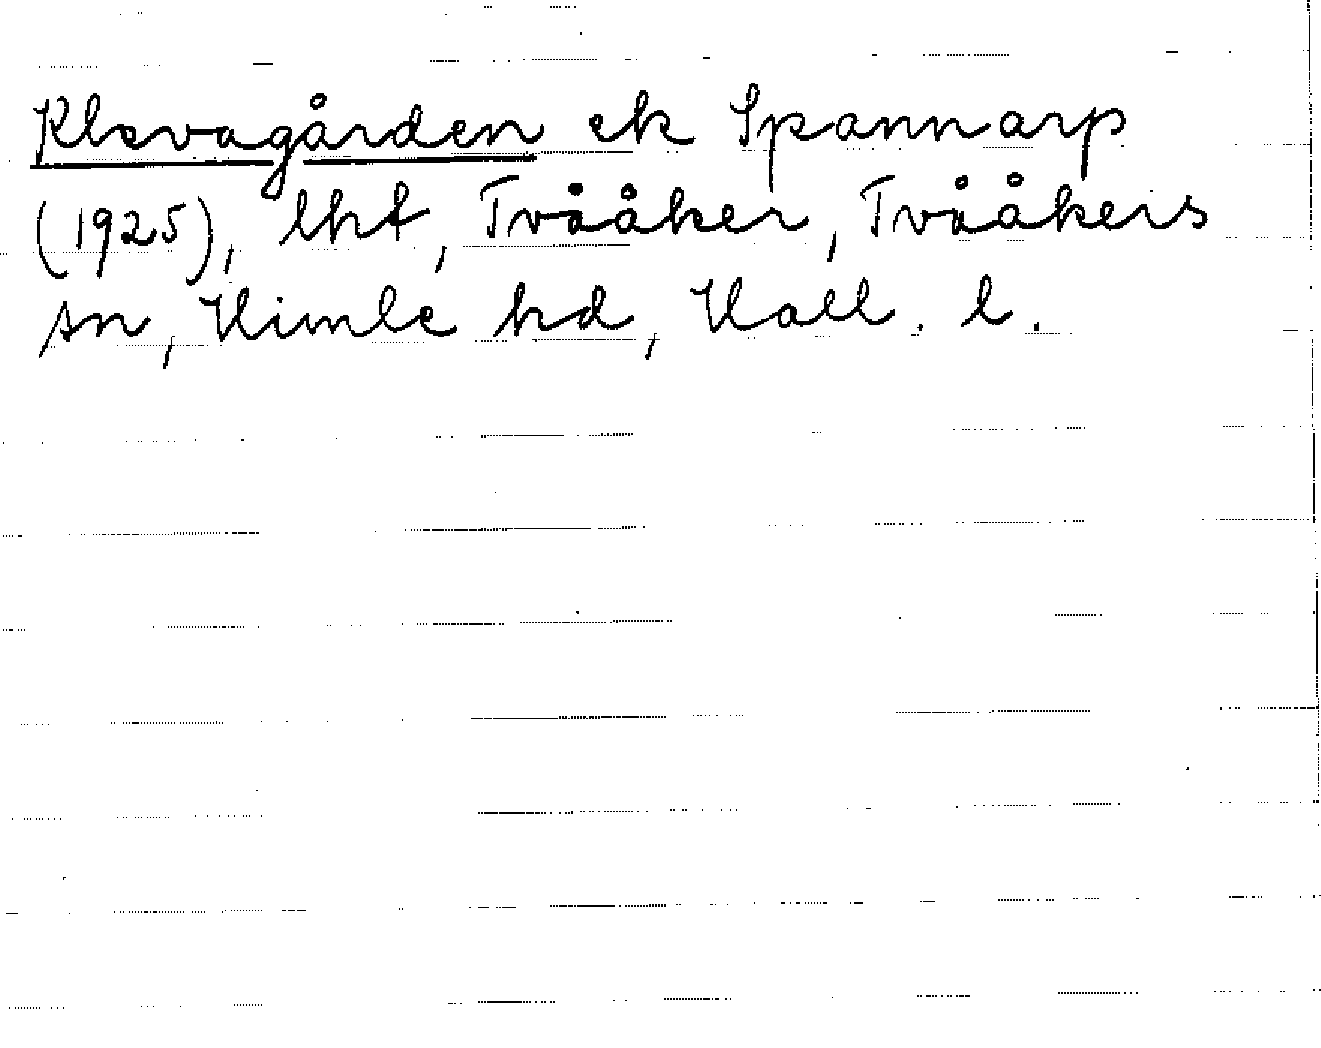 Klevagården ek Spannarp
(1925), lht, Tvååker, Tvååkers
sn, Himle hd, Hall. l.